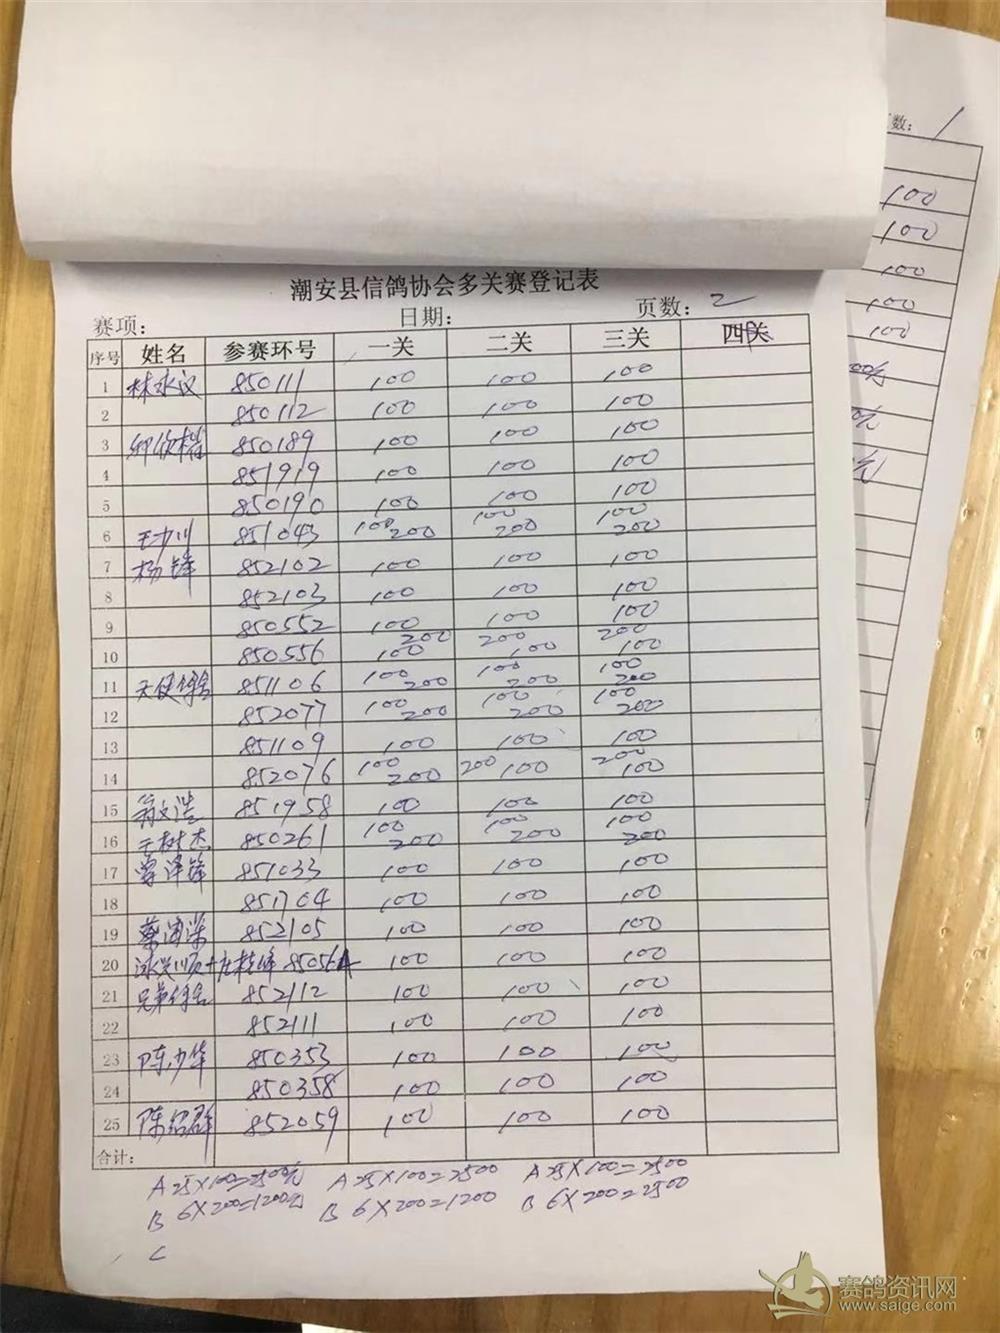 数: 1
100
100
100
100
100
00元
0元
元
潮安县信鸽协会多关赛登记表
赛项: 日期: 页数: 2
序号 姓名 参赛环号 一关 二关 三关 四关
1 林永汉 850111 100 100 100
2 850112 100 100 100
3 850189 100 100 100
4 851919 100 100 100
5 850190 100 100 100
6 王少川 851043 100 200 100 200 100 200
7 杨锋 852102 100 100 100
8 852103 100 100 100
9 850552 100 100 100
10 850556 200 100 200 100 200 100
11 天使鸽舍 851106 100 200 100 200 100 200
12 852077 100 200 100 200 100 200
13 851109 100 100 100
14 852076 100 200 200 100 200 100
15 翁文浩 851958 100 100 100
16 王树杰 850261 100 200 100 200 100 200
17 曾泽锋 851033 100 100 100
18 851704 100 100 100
19 蔡 852105 100 100 100
20 850564 100 100 100
21 兄弟鸽舍 852112 100 100 100
22 852111 100 100 100
23 陈少华 850353 100 100 100
24 850358 100 100 100
25 陈绍群 852059 100 100 100
合计:
A 25×100=2500元 A 25×100=2500 A 25×100=2500
B 6×200=1200元 B 6×200=1200 B 6×200=2500
C
赛鸽资讯网
www.saige.com